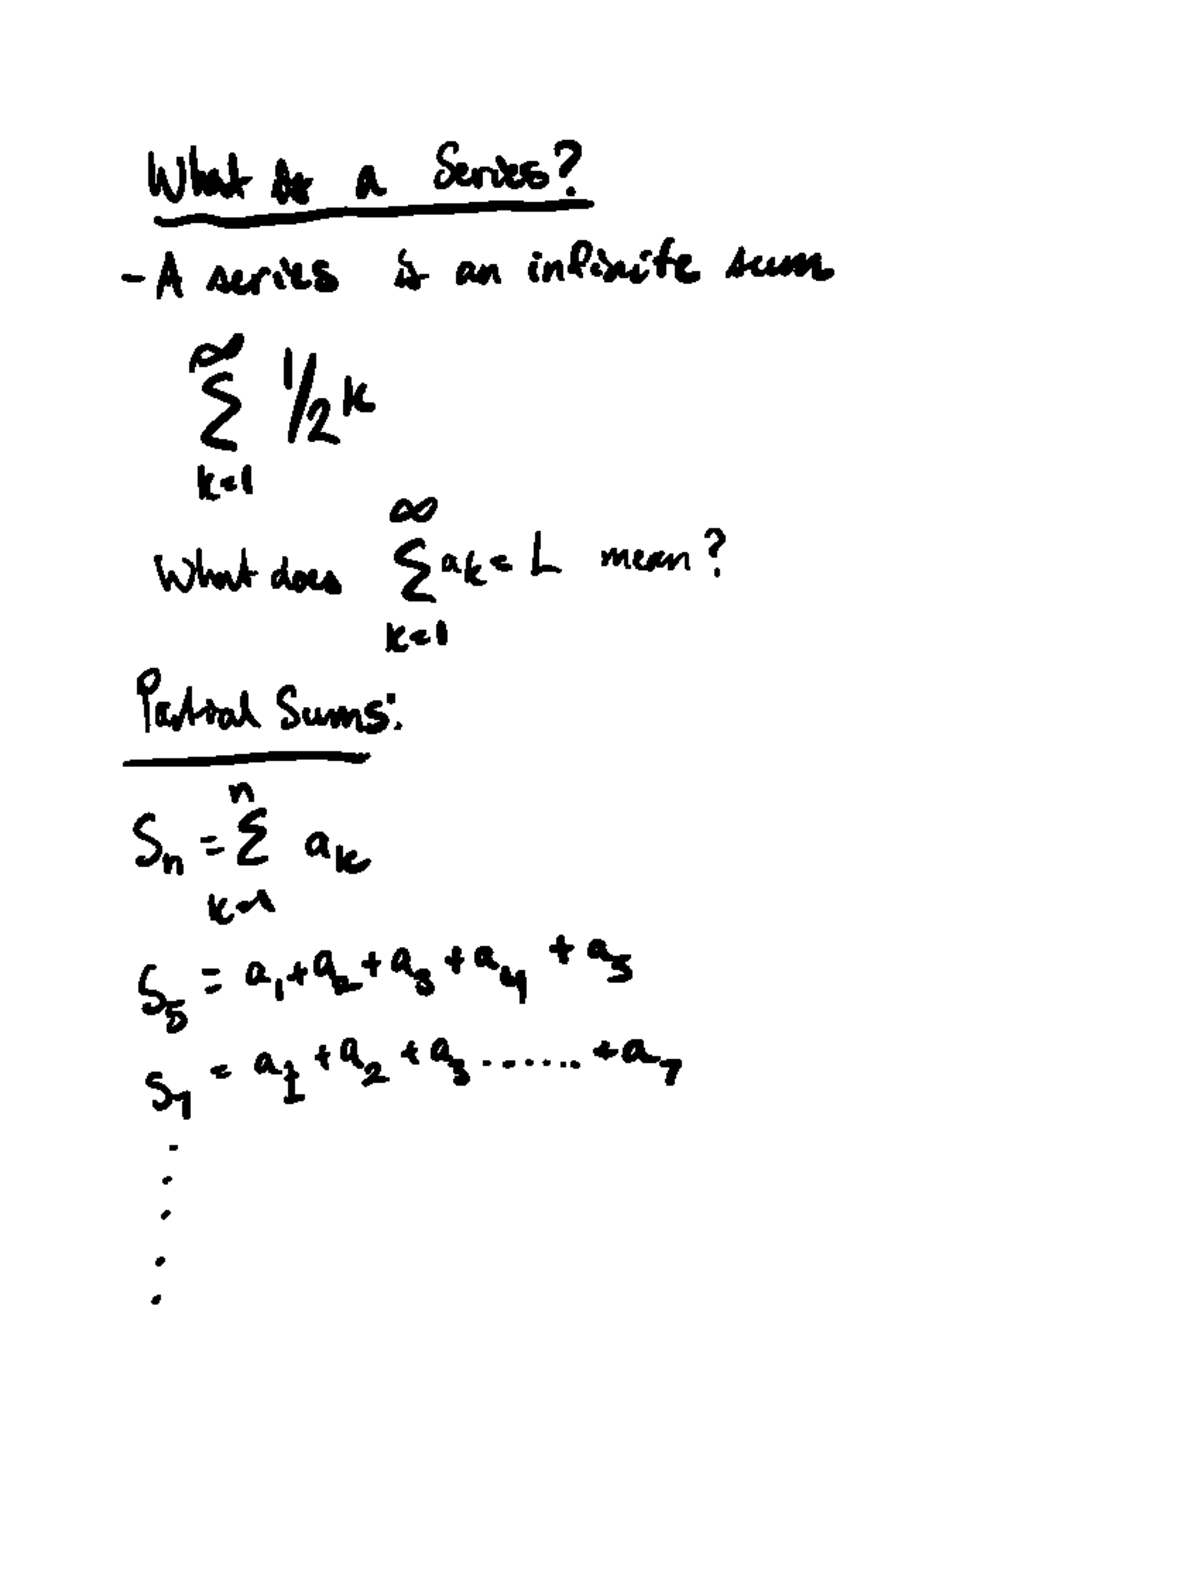 What is a Series?
- A series is an infinite sum
∞
Σ 1/2^k
k=1
∞
What does Σ a_k = L mean?
k=1
Partial Sums:
n
S_n = Σ a_k
k=1
S_5 = a_1 + a_2 + a_3 + a_4 + a_5
S_7 = a_1 + a_2 + a_3 ...... + a_7
.
.
.
.
.